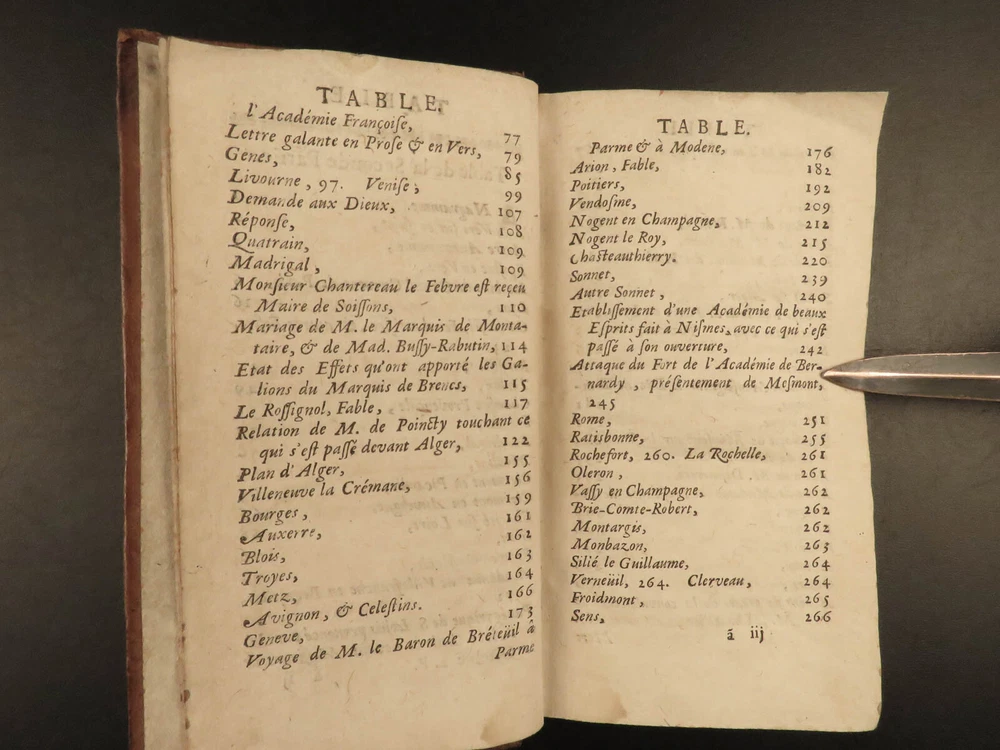 TABLE.
l'Académie Françoise,
77
Lettre galante en Prose & en Vers, 79
Genes, 85
Livourne, 97. Venise; 99
Demande aux Dieux, 107
Réponse, 108
Quatrain, 109
Madrigal, 109
Monsieur Chantereau le Febvre est reçeu
Maire de Soissons, 110
Mariage de M. le Marquis de Monta-
taire, & de Mad. Bussy-Rabutin, 114
Etat des Effets qu'ont apporté les Ga-
lions du Marquis de Brencs, 115
Le Rossignol, Fable, 117
Relation de M. de Poincty touchant ce
qui s'est passé devant Alger, 122
Plan d'Alger, 155
Villeneuve la Crémane, 156
Bourges, 159
Auxerre, 161
Blois, 162
Troyes, 163
Metz, 164
Avignon, & Celestins. 166
Geneve, 173
Voyage de M. le Baron de Bréteüil à
Parme
TABLE.
Parme & à Modene, 176
Arion, Fable, 182
Poitiers, 192
Vendosme, 209
Nogent en Champagne, 212
Nogent le Roy, 215
Chasteauthierry. 220
Sonnet, 239
Autre Sonnet, 240
Etablissement d'une Académie de beaux
Esprits fait à Nismes, avec ce qui s'est
passé à son ouverture, 242
Attaque du Fort de l'Académie de Ber-
nardy, présentement de Mesmont,
245
Rome, 251
Ratisbonne, 255
Rochefort, 260. La Rochelle, 261
Oleron, 261
Vassy en Champagne, 262
Brie-Comte-Robert, 262
Montargis, 262
Monbazon, 263
Silié le Guillaume, 264
Verneüil, 264. Clerveau, 264
Froidmont, 265
Sens, 266
á iij